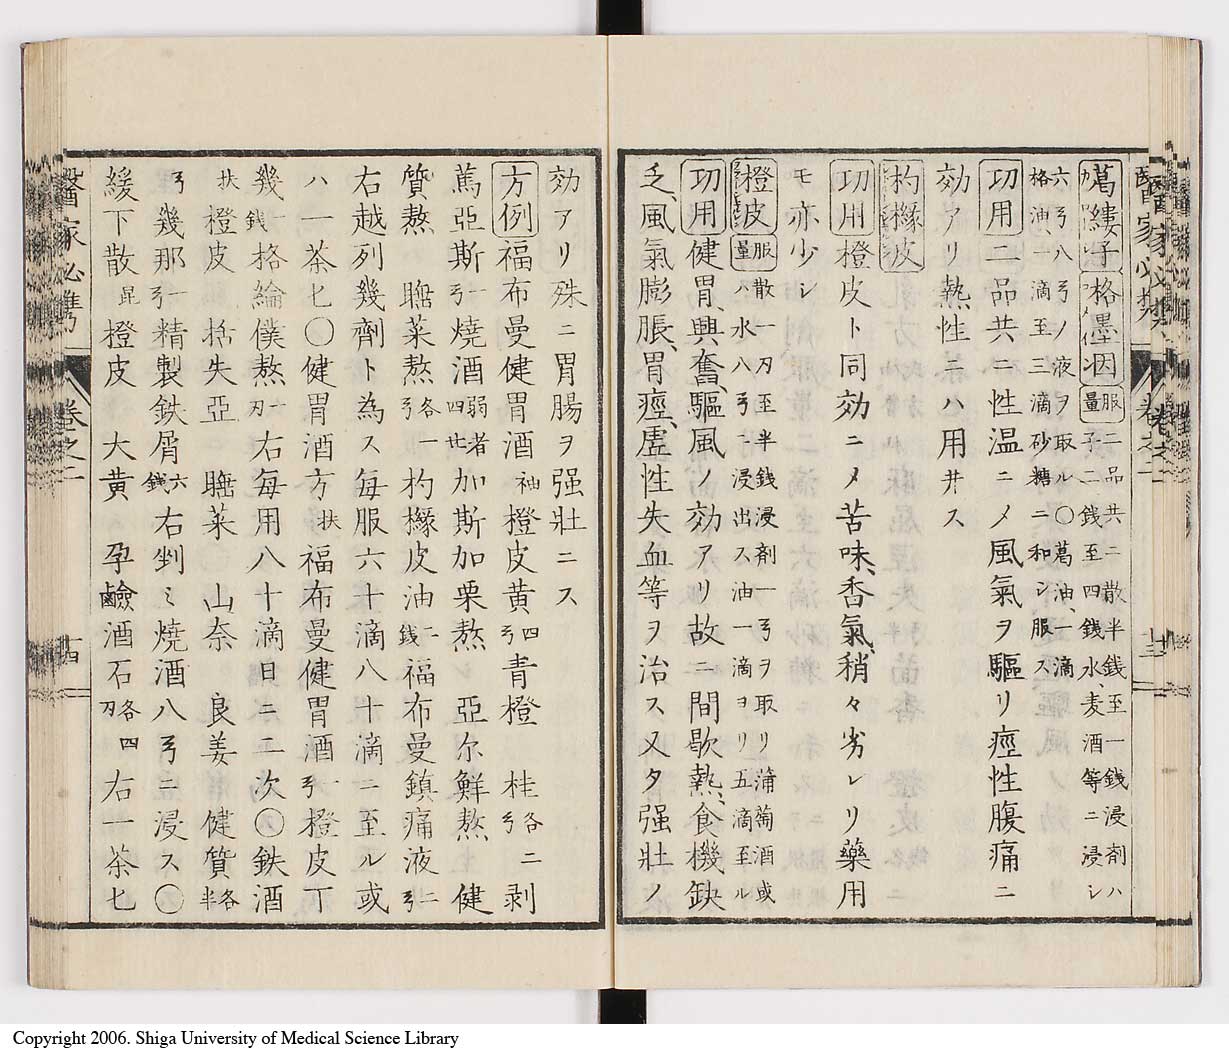 醫家必携
葛縷子 格墨因 服量 二品共ニ散半銭至一銭浸剤ハ
子二銭至四銭水、麦酒等ニ浸シ
六弓八弓ノ液ヲ取ル〇葛油、一滴
格油、一滴至三滴砂糖ニ和シ服ス
功用 二品共ニ性温ニメ風氣ヲ驅リ痙性腹痛ニ
効アリ熱性ニハ用井ス
枸櫞皮
功用 橙皮ト同効ニメ苦味、香氣、稍々劣レリ藥用
モ亦少シ
橙皮 服量 散一刃至半銭浸剤一弓ヲ取リ蒲萄酒或
ハ水八弓ニ浸出ス油一滴ヲリ五滴至ル
功用 健胃、興奮、驅風ノ効アリ故ニ間歇熱、食機缺
乏、風氣膨脹、胃痙、虚性失血等ヲ治ス又タ强壯ノ
卷之二
十三
効アリ殊ニ胃腸ヲ强壯ニス
方例 福布曼健胃酒 袖 橙皮黄 四弓 青橙 桂 各二弓 剥
篤亞斯 一弓 燒酒 弱者四廿 加斯加栗熬 亞尔鮮熬 健
質熬 睢菜熬 各一弓 枸櫞皮油 一銭 福布曼鎮痛液 二弓
右越列幾劑ト為ス毎服六十滴八十滴ニ至ル或
ハ一茶匕〇健胃酒方 扶 福布曼健胃酒 一弓 橙皮丁
幾 一銭 格綸僕熬 一刃 右毎用八十滴日ニ二次〇鉄酒
扶 橙皮 括失亞 睢菜 山奈 良姜 健質 各半
弓 幾那 一弓 精製鉄屑 六銭 右剉ミ燒酒八弓ニ浸ス〇
緩下散 昆 橙皮 大黄 孕鹼酒石 各四刃 右一茶匕
醫家必携
卷之二
十四
Copyright 2006. Shiga University of Medical Science Library